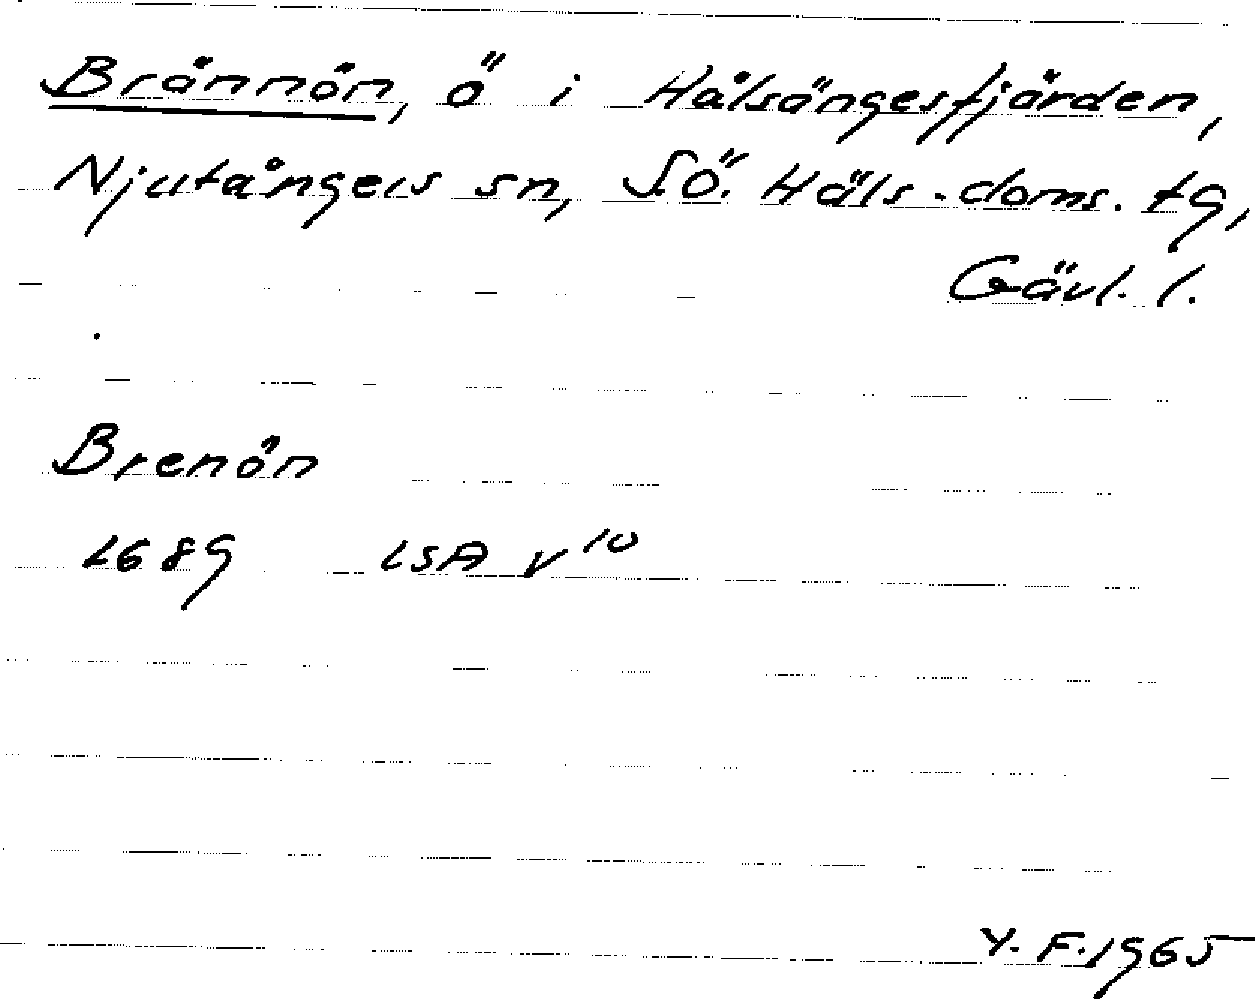 Brännön, ö i Hälsängesfjärden,
Njutångers sn, S.Ö. Häls. doms. tg,
Gävl. l.
Brenön
1689 LSA V 10
Y. F. 1965